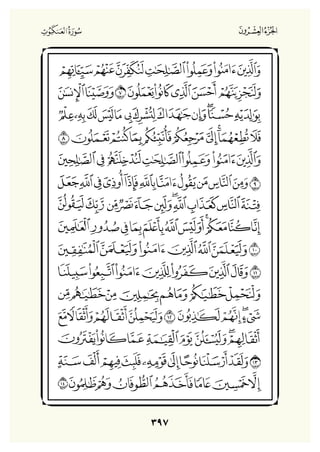 الجزء العشرون
سورة العنكبوت
وَالَّذِينَ ءَامَنُوا وَعَمِلُوا الصَّٰلِحَٰتِ لَنُكَفِّرَنَّ عَنْهُمْ سَيِّـَٔاتِهِمْ
وَلَنَجْزِيَنَّهُمْ أَحْسَنَ الَّذِى كَانُوا يَعْمَلُونَ ٧ وَوَصَّيْنَا الْإِنسَٰنَ
بِوَٰلِدَيْهِ حُسْنًا ۖ وَإِن جَٰهَدَاكَ لِتُشْرِكَ بِى مَا لَيْسَ لَكَ بِهِۦ عِلْمٌ
فَلَا تُطِعْهُمَا ۚ إِلَىَّ مَرْجِعُكُمْ فَأُنَبِّئُكُم بِمَا كُنتُمْ تَعْمَلُونَ ٨
وَالَّذِينَ ءَامَنُوا وَعَمِلُوا الصَّٰلِحَٰتِ لَنُدْخِلَنَّهُمْ فِى الصَّٰلِحِينَ
٩ وَمِنَ النَّاسِ مَن يَقُولُ ءَامَنَّا بِاللَّهِ فَإِذَا أُوذِىَ فِى اللَّهِ جَعَلَ
فِتْنَةَ النَّاسِ كَعَذَابِ اللَّهِ وَلَئِن جَآءَ نَصْرٌ مِّن رَّبِّكَ لَيَقُولُنَّ
إِنَّا كُنَّا مَعَكُمْ ۚ أَوَلَيْسَ اللَّهُ بِأَعْلَمَ بِمَا فِى صُدُورِ الْعَٰلَمِينَ
١٠ وَلَيَعْلَمَنَّ اللَّهُ الَّذِينَ ءَامَنُوا وَلَيَعْلَمَنَّ الْمُنَٰفِقِينَ
١١ وَقَالَ الَّذِينَ كَفَرُوا لِلَّذِينَ ءَامَنُوا اتَّبِعُوا سَبِيلَنَا
وَلْنَحْمِلْ خَطَٰيَٰكُمْ وَمَا هُم بِحَٰمِلِينَ مِنْ خَطَٰيَٰهُم مِّن
شَىْءٍ ۖ إِنَّهُمْ لَكَٰذِبُونَ ١٢ وَلَيَحْمِلُنَّ أَثْقَالَهُمْ وَأَثْقَالًا مَّعَ
أَثْقَالِهِمْ ۖ وَلَيُسْـَٔلُنَّ يَوْمَ الْقِيَٰمَةِ عَمَّا كَانُوا يَفْتَرُونَ
١٣ وَلَقَدْ أَرْسَلْنَا نُوحًا إِلَىٰ قَوْمِهِۦ فَلَبِثَ فِيهِمْ أَلْفَ سَنَةٍ
إِلَّا خَمْسِينَ عَامًا فَأَخَذَهُمُ الطُّوفَانُ وَهُمْ ظَٰلِمُونَ ١٤
٣٩٧